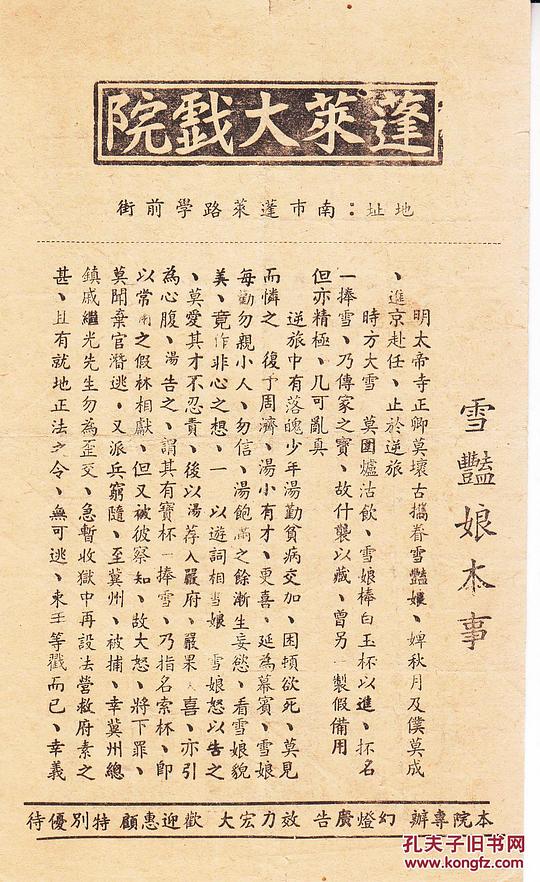 蓬萊大戲院
地址:南市蓬萊路學前街
雪豔娘本事
明太帝寺正卿莫壞古攜眷雪豔孃、婢秋月及僕莫成
、進京赴任、止於逆旅
時方大雪 莫圍爐沽飲、雪娘棒白玉杯以進、抔名
一捧雪、乃傳家之寶、故什襲以藏、曾另一製假備用
但亦精極、几可亂真
逆旅中有落魄少年湯勤貧病交加、困頓欲死、莫見
而憐之 復予周濟、湯小有才、更喜、延為幕賓、雪娘
每勸勿親小人、勿信、湯飽滿之餘漸生妄慾、看雪娘貌
美、竟作非心之想、一 以遊詞相 娘 雪娘怒以告之
、莫愛其才不忍責、後以湯荐入嚴府、嚴果 喜、亦引
為心腹、湯告之、謂其有寶杯一捧雪、乃指名索杯、即
以常用之假杯相獻、但又被彼察知、故大怒、將下罪、
莫聞棄官潛逃、又派兵窮隨、至冀州、被捕、幸冀州總
鎮戚繼光先生勿為歪交、急暫收獄中再設法營救府素之
甚、且有就地正法之令、無可逃、束手等戮而已、幸義
本院專辦 幻燈廣告 效力宏大 歡迎惠顧 特別優待
孔夫子旧书网
www.kongfz.com